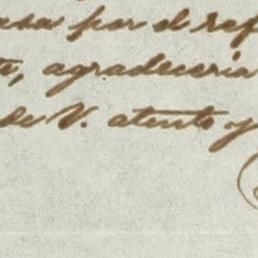 asa por el ref
te, agradeceria
de V. atento y